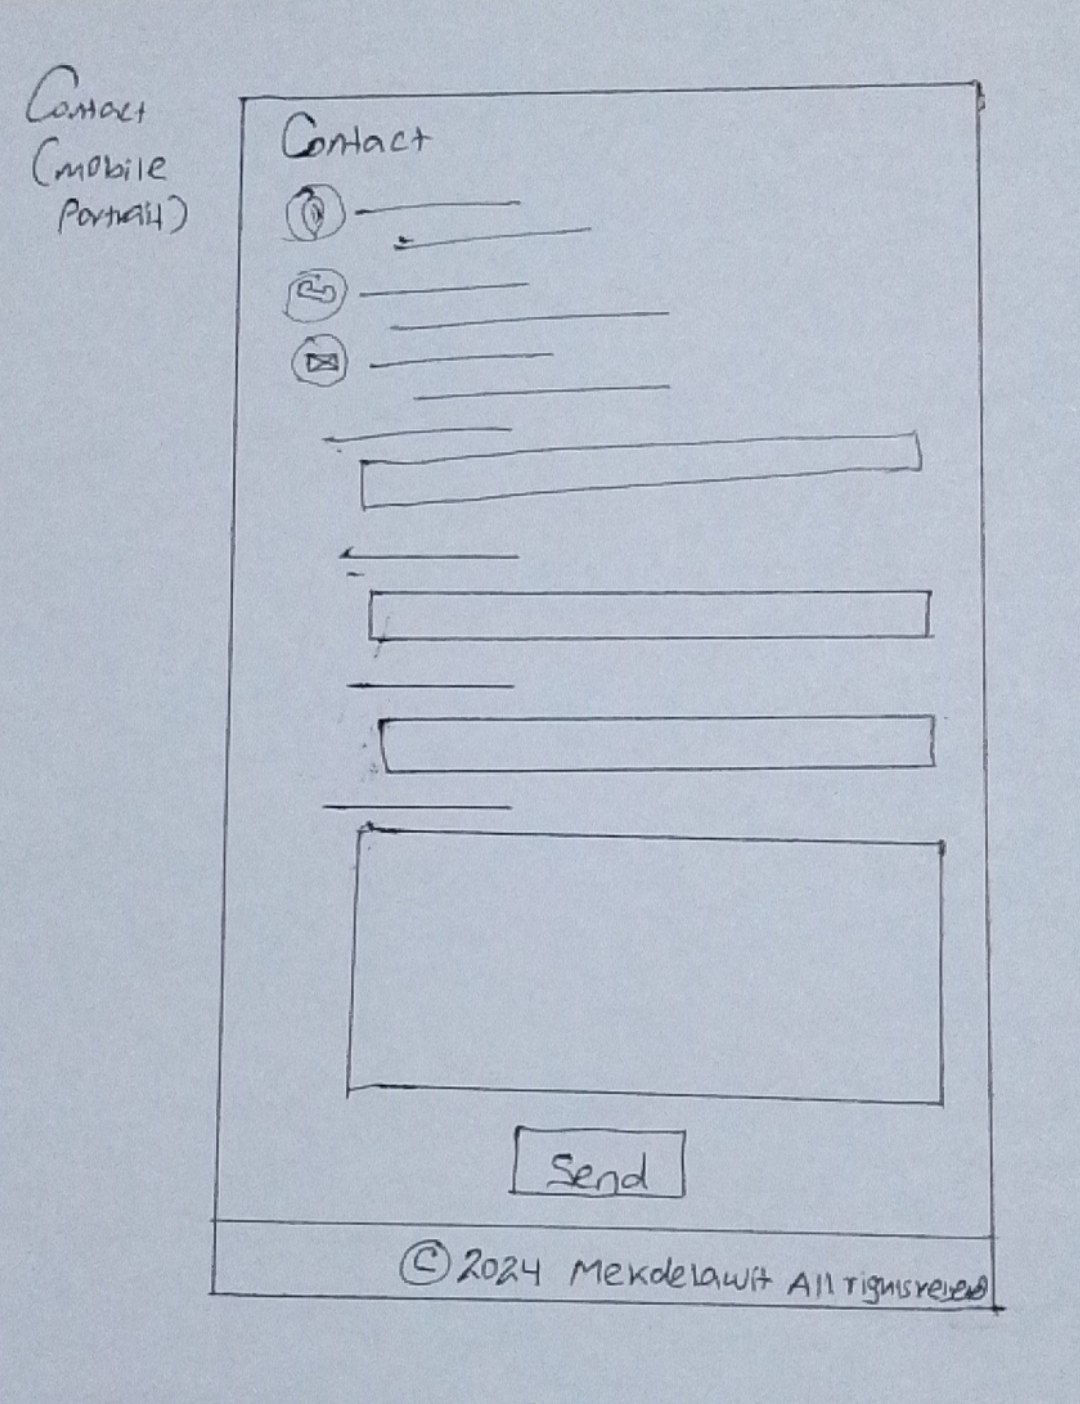 Contact
(mobile
Portrait)
Contact
Send
© 2024 Mekdelawit All rights